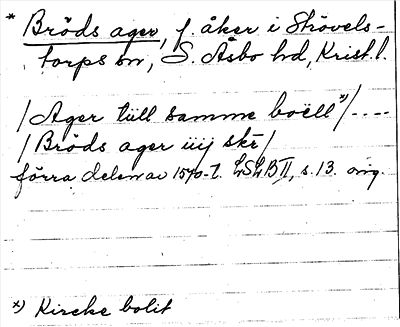 * Bröds ager, f. åker i Strövels-
torps sn, S. Åsbo hd, Krist. l.
/Ager tüll samme boëll *)/....
/Bröds ager iiij skr/
förra delen av 1500-t. LSLB II, s. 13. orig.
*) Kircke bolit